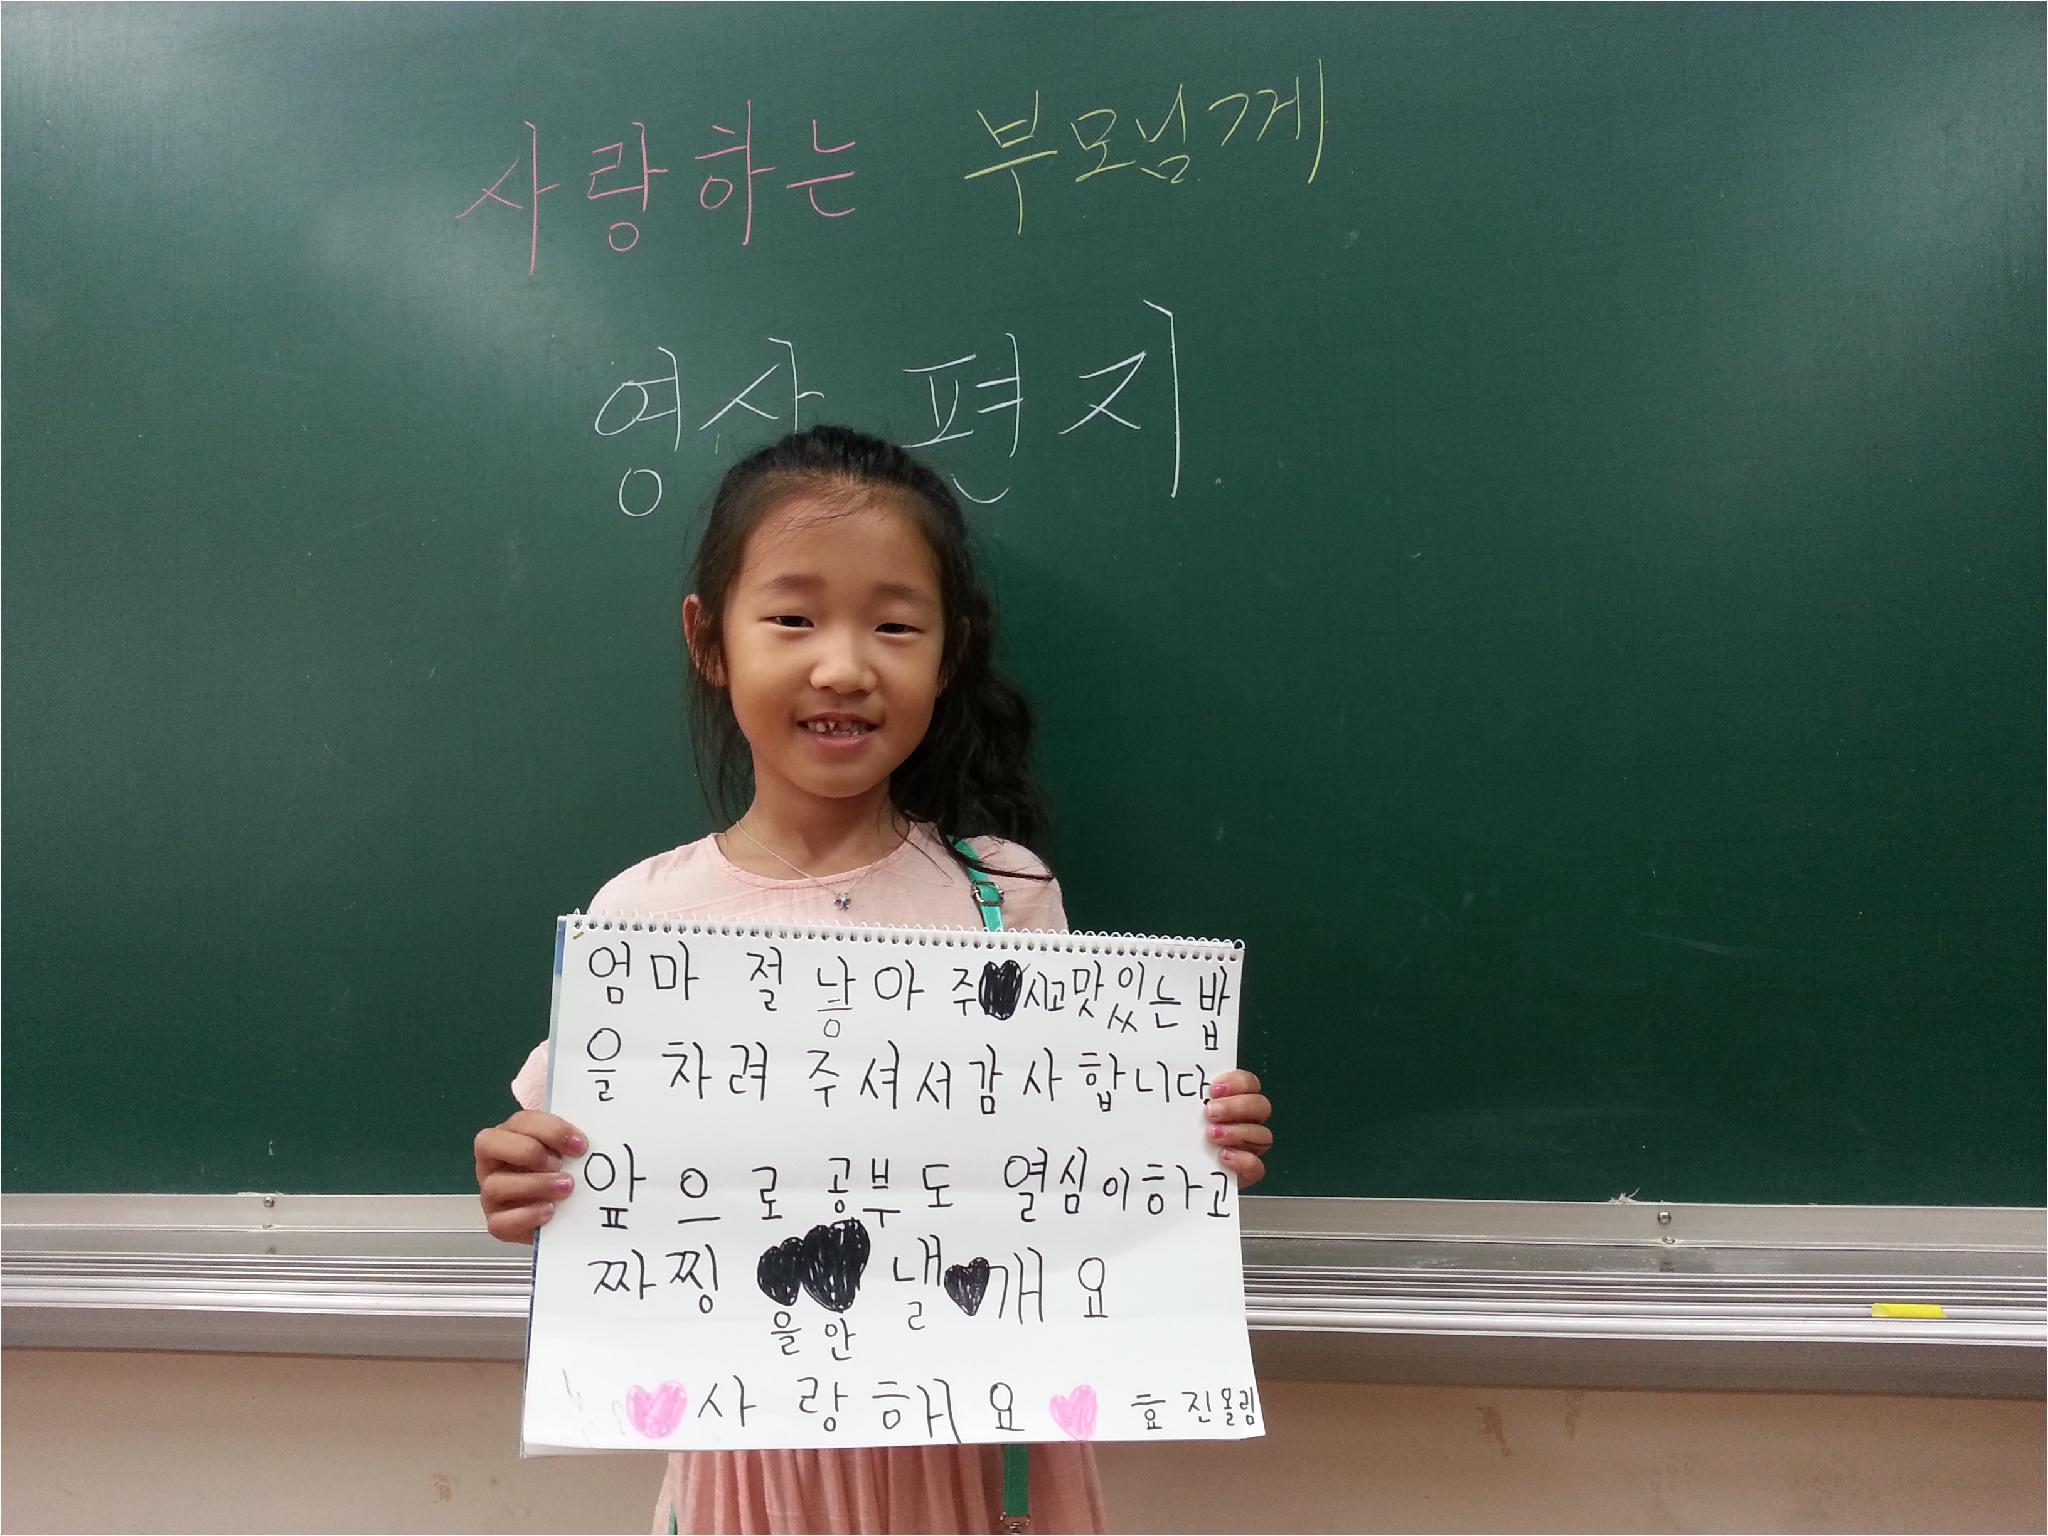 사랑하는 부모님께
영상 편지
엄마 절 낳아 주시고 맛있는 밥
을 차려 주셔서 감사합니다.
앞으로 공부도 열심이하고
짜찡 을 안 낼개요
사랑해요 효진올림